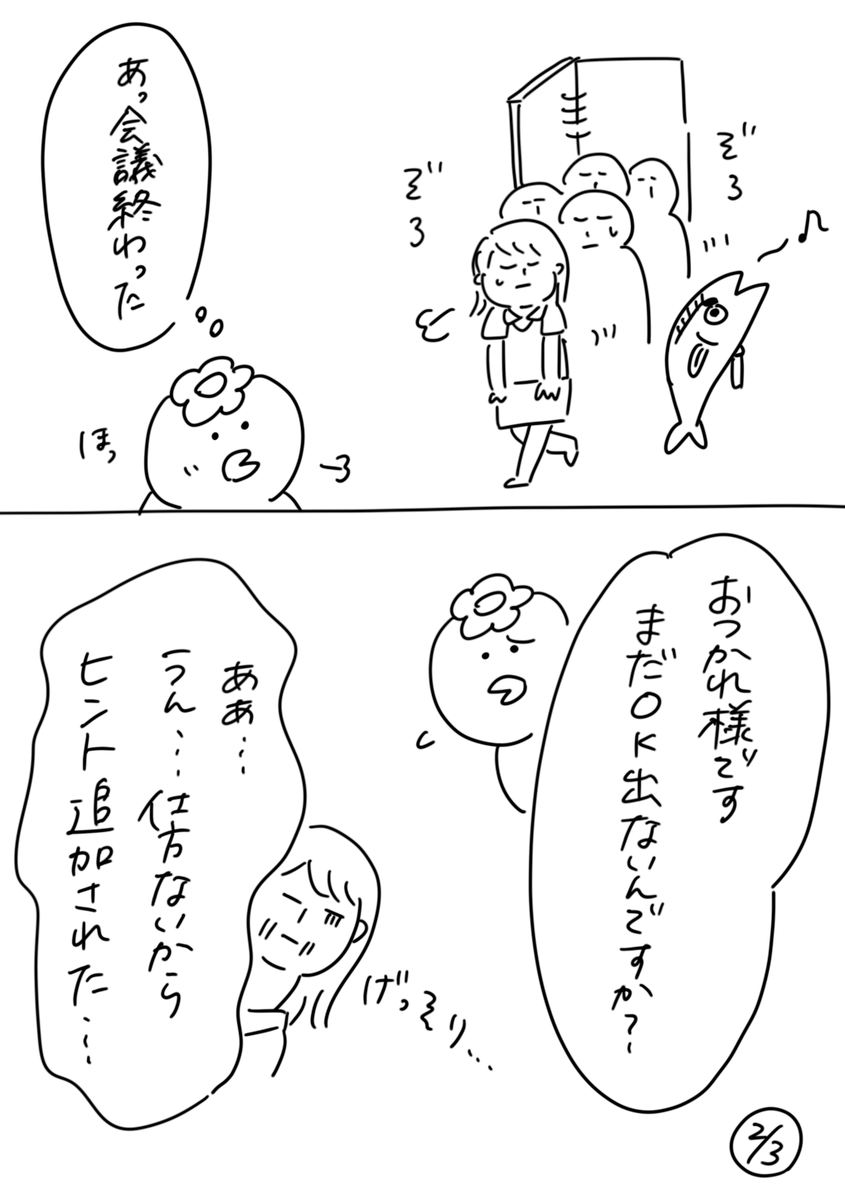 ぞろ
ぞろ
♪
あっ会議終わった
ほっ
おつかれ様です
まだOK出ないんですか？
ああ…
うん…仕方ないから
ヒント追加された…
げっそり…
2/3